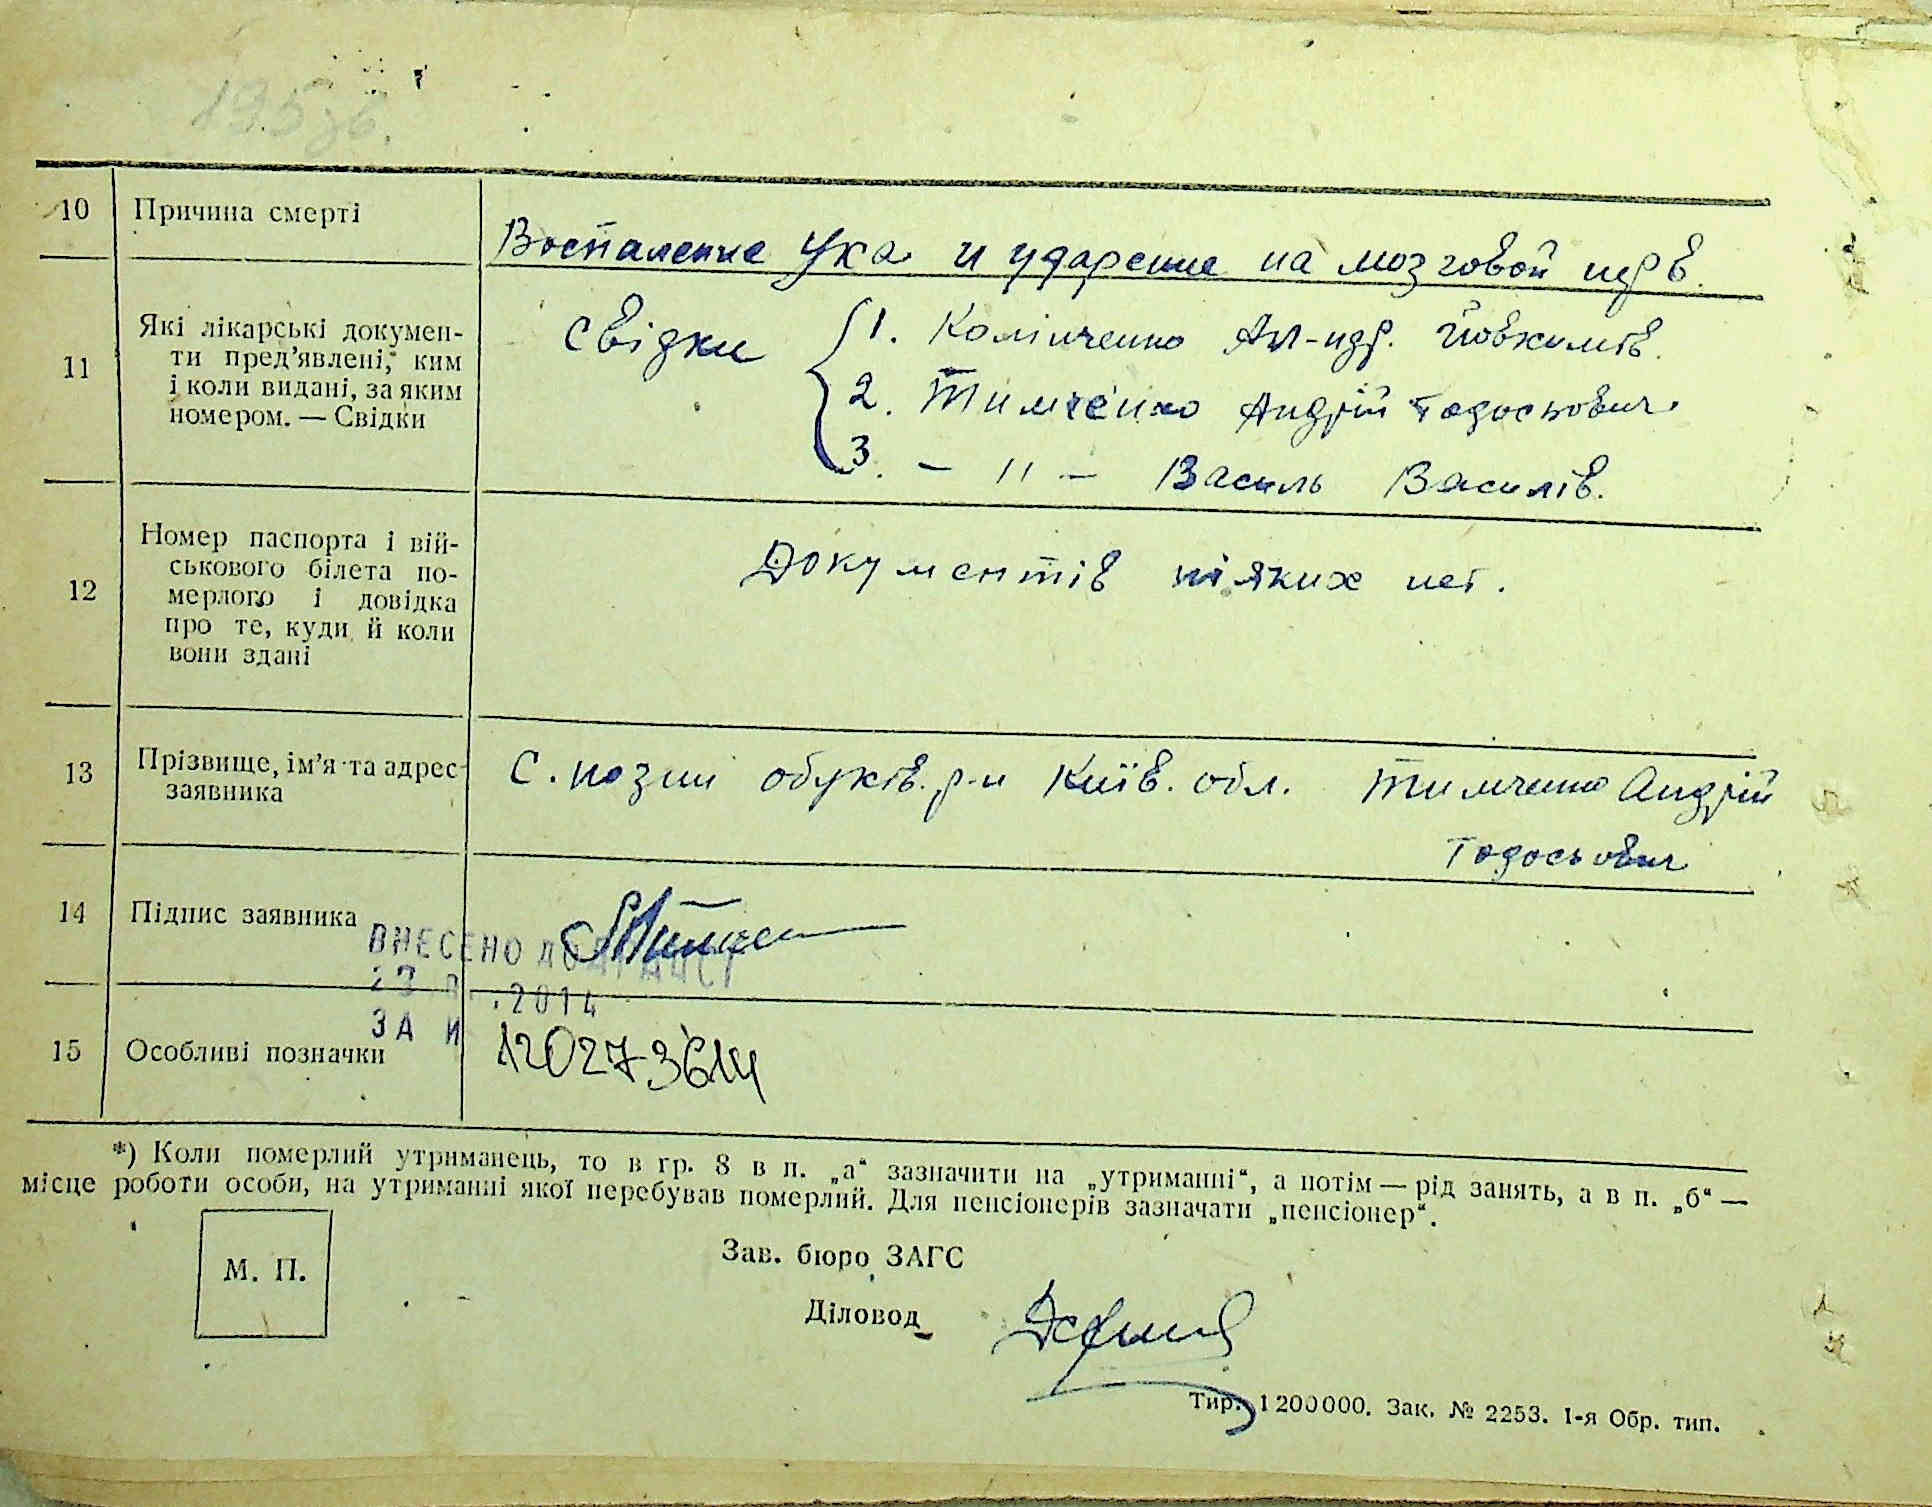 10 Причина смерті
Воспаление Уха и ударение на мозговой нерв.
11 Які лікарські докумен-
ти пред’явлені, ким
і коли видані, за яким
номером. — Свідки
Свідки
1. Ал-ндр.
2. Тимченко Андрій Тодосьович.
3. – 〃 – Василь Василів.
12 Номер паспорта і вій-
ськового білета по-
мерлого і довідка
про те, куди й коли
вони здані
Документів ніяких нет.
13 Прізвище, ім’я та адрес
заявника
С. обухів. р-н Київ. обл. Тимченко Андрій
Тодосьович
14 Підпис заявника
ВНЕСЕНО ДО
.2014
ЗА
15 Особливі позначки
*) Коли померлий утриманець, то в гр. 8 в п. „а“ зазначити на „утриманні“, а потім — рід занять, а в п. „б“ —
місце роботи особи, на утриманні якої перебував померлий. Для пенсіонерів зазначати „пенсіонер“.
М. П.
Зав. бюро ЗАГС
Діловод
Тир. 1200000. Зак. № 2253. 1-я Обр. тип.